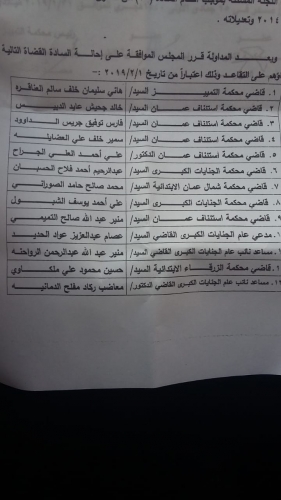 ٢٠١٤ وتعديلاته .
وبعد المداولة قرر المجلس الموافقة على إحالة السادة القضاة التالية
على التقاعد وذلك اعتباراً من تاريخ ٢٠١٩/٢/١ :-
١. قاضي محكمة التمييز السيد/ هاني سليمان خلف سالم العناقره
٢. قاضي محكمة استئناف عمان السيد/ خالد جحيش عايد الدبيس
٣. قاضي محكمة استئناف عمان السيد/ فارس توفيق جريس الداوود
٤. قاضي محكمة استئناف عمان السيد/ سمير خلف علي العضايله
٥. قاضي محكمة استئناف عمان الدكتور/ علي أحمد العلي الجراح
٦. قاضي محكمة الجنايات الكبرى السيد/ عبدالرحيم أحمد فلاح الحسبان
٧. قاضي محكمة شمال عمان الابتدائية السيد/ محمد صالح حامد الصوراني
٨. قاضي محكمة الجنايات الكبرى السيد/ علي أحمد يوسف الشبول
٩. قاضي محكمة استئناف عمان السيد/ منير عبد الله صالح التميمي
١. مدعي عام الجنايات الكبرى القاضي السيد/ عصام عبدالعزيز عواد الحديد
١. مساعد نائب عام الجنايات الكبرى القاضي السيد/ منير عبد الله عبدالرحمن الرواحنه
١. قاضي محكمة الزرقاء الابتدائية السيد/ حسين محمود علي ملكاوي
١. مساعد نائب عام الجنايات الكبرى القاضي الدكتور/ معاضب ركاد مفلح الدمانيه